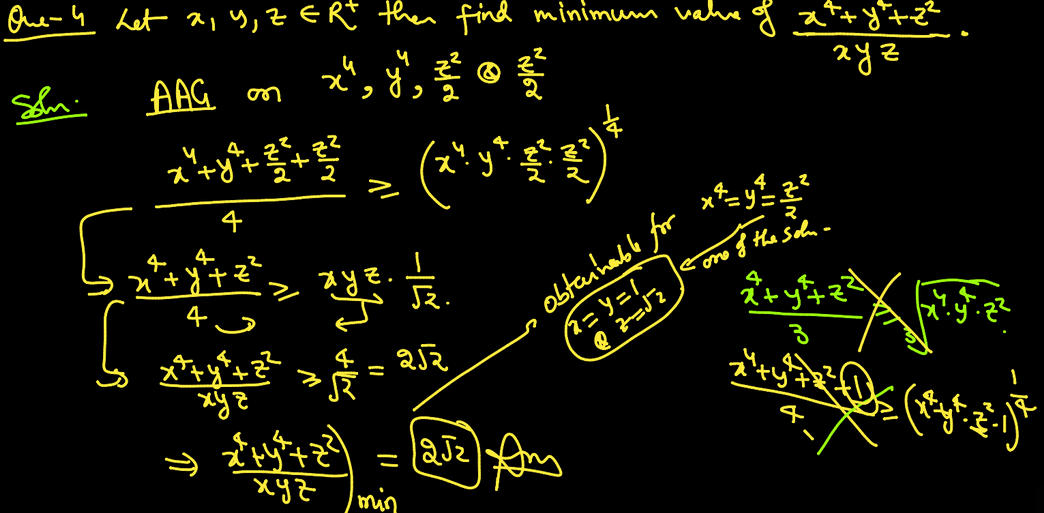 Que-4 Let x, y, z ∈ R⁺ then find minimum value of (x⁴+y⁴+z²)/(xyz).
Soln. AAG on x⁴, y⁴, z²/2 & z²/2
(x⁴+y⁴+z²/2+z²/2)/4 ≥ (x⁴·y⁴·z²/2·z²/2)^(1/4)
(x⁴+y⁴+z²)/4 ≥ xyz·1/√2.
(x⁴+y⁴+z²)/(xyz) ≥ 4/√2 = 2√2
⇒ (x⁴+y⁴+z²)/(xyz))min = 2√2 Ans
obtainable for
x=y=1
& z=√2
x⁴=y⁴=z²/2
one of the soln.
(x⁴+y⁴+z²)/3 ≥ ³√(x⁴·y⁴·z²).
(x⁴+y⁴+z²+1)/4 ≥ (x⁴·y⁴·z²·1)^(1/4)